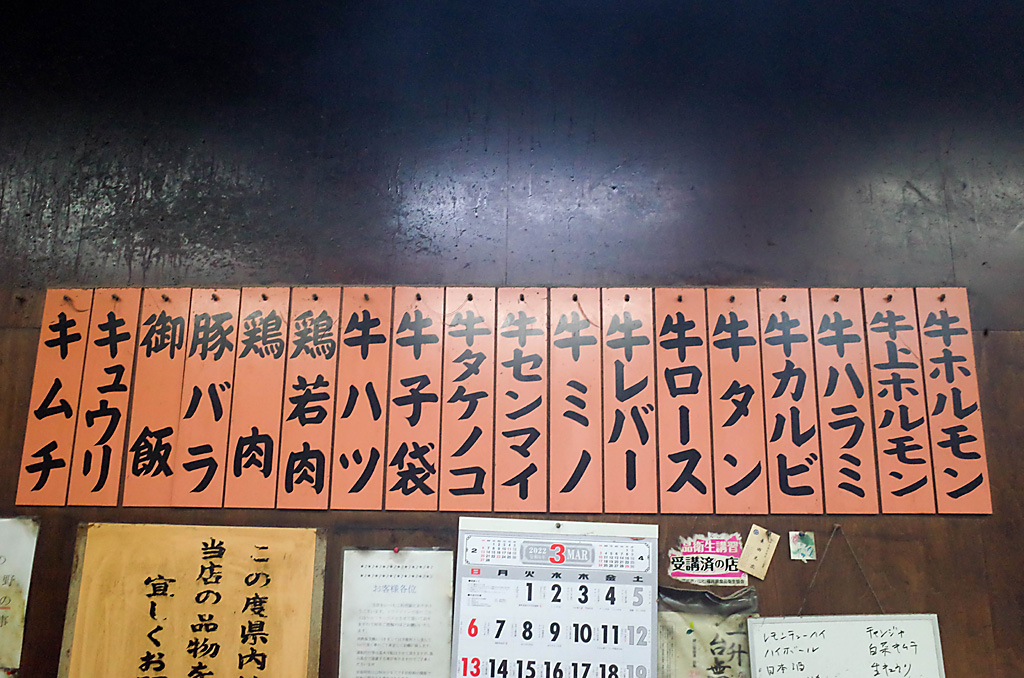 牛ホルモン
牛上ホルモン
牛ハラミ
牛カルビ
牛タン
牛ロース
牛レバー
牛ミノ
牛センマイ
牛タケノコ
牛子袋
牛ハツ
鶏若肉
鶏肉
豚バラ
御飯
キュウリ
キムチ
この度県内
当店の品物を
宜しくお
お客様各位
2 2022 3 MAR 4
日 月 火 水 木 金 土
1 2 3 4 5
6 7 8 9 10 11 12
13 14 15 16 17 18 19
品衛生講習
受講済の店
一升
台無
レモンチューハイ
ハイボール
日本酒
チャンジャ
白菜キムチ
生キュウリ